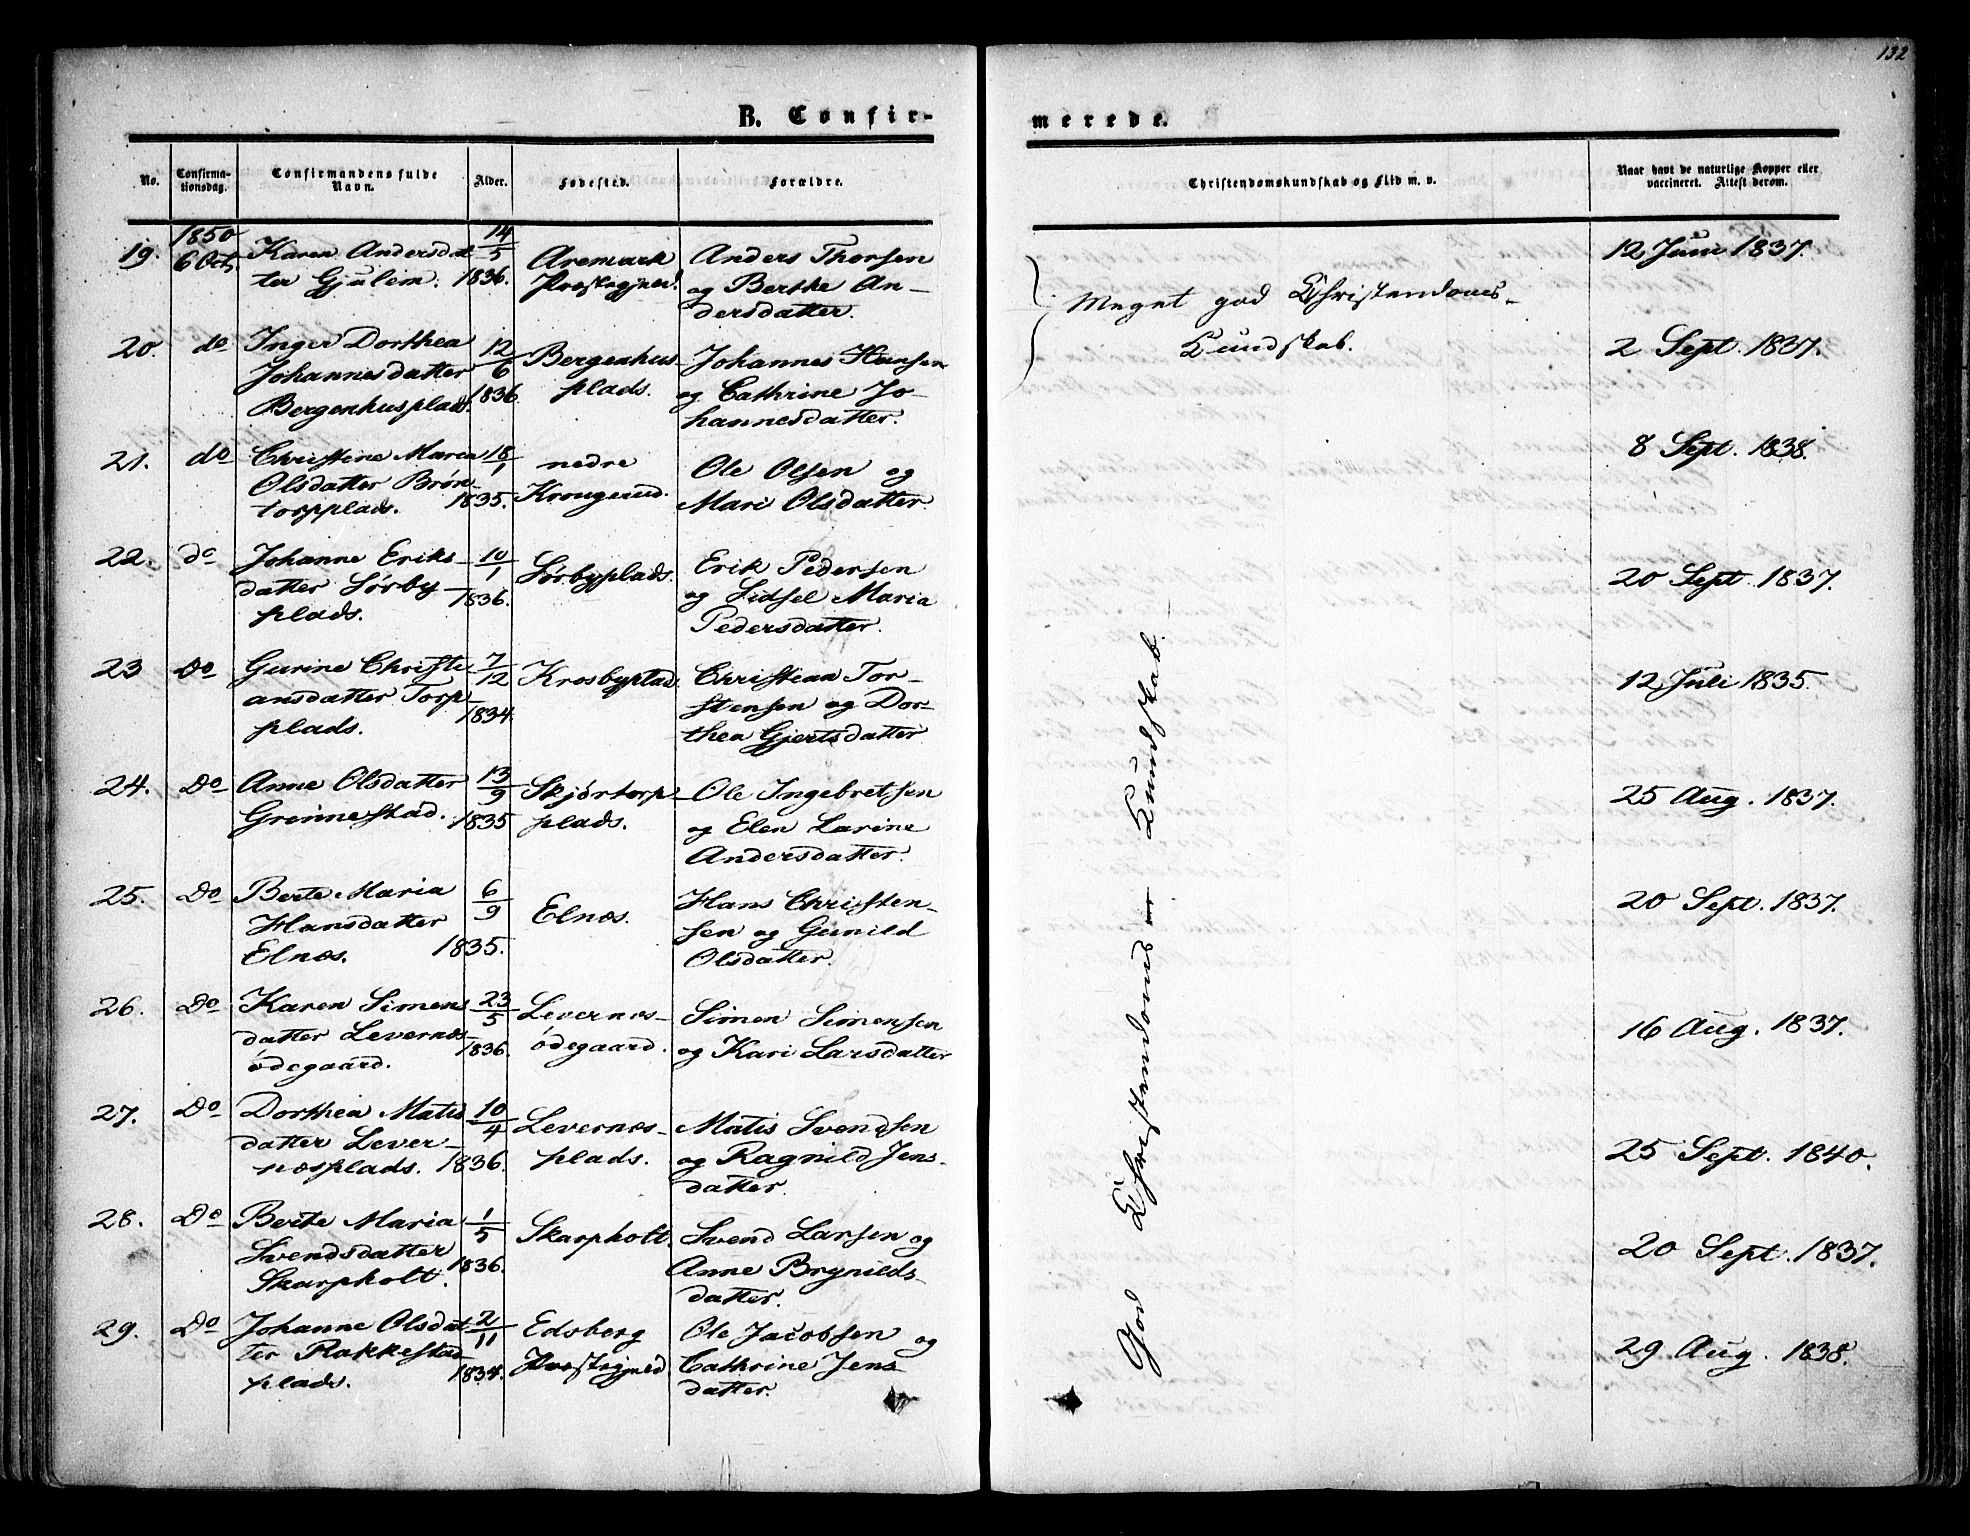 132
B. Confir-
merede.
No.
Confirma-
tionsdag.
Confirmandens fulde
Navn.
Alder.
Fødested.
Forældre.
Christendomskundskab og Flid m. v.
Naar havt de naturlige Kopper eller
vaccineret. Attest derom.
19. 1850 6 Oct. Karen Andersdat
ter Gjulem. 14/5 1836. Aremark
Præstegjeld. Anders Thorsen
og Berthe An-
dersdatter.
Meget god Christendoms-
Kundskab.
12 Juni 1837.
20. do Inger Dorthea
Johannesdatter
Bergenhusplads. 12/6 1836 Bergenhus
plads. Johannes Hansen
og Cathrine Jo-
hannesdatter.
2 Sept. 1837.
21. do Christine Maria
Olsdatter Brøn-
torpplads. 18/1 1835. nedre
Krougerud. Ole Olsen og
Mari Olsdatter.
8 Sept. 1838.
22. do Johanne Eriks-
datter Sørby-
plads. 10/1 1836. Sørbyplads. Erik Pedersen
og Sidsel Maria
Pedersdatter.
20 Sept. 1837.
23 Do Gurine Christi-
ansdatter Torp-
plads. 7/12 1834. Krosbyplad. Christian Tor-
stensen og Dor-
thea Gjertsdatter
12 Juli 1835.
24. Do Anne Olsdatter
Grinnestad. 13/9 1835 Skjørtorp-
plads. Ole Ingebretsen
og Elen Larine
Andersdatter.
25 Aug. 1837.
25. Do Berte Maria
Hansdatter
Elnæs. 6/9 1835. Elnæs. Hans Christen-
sen og Gunild
Olsdatter.
20 Sept. 1837.
26. Do Karen Simens
datter Levernæs-
ødegaard. 23/5 1836. Levernæs-
ødegaard. Simen Simensen
og Kari Larsdatter
16 Aug. 1837.
27. Do Dorthea Matis
datter Lever-
næsplads. 10/4 1836. Levernæs-
plads. Matis Svendsen
og Ragnild Jens-
datter.
25 Sept. 1840.
28. Do Berte Maria
Svendsdatter
Skarpholt. 1/5 1836. Skarpholt. Svend Larsen og
Anne Brynilds-
datter.
20 Sept. 1837.
29. Do Johanne Olsdat
ter Rakkestad
plads. 2/11 1834. Edsberg
Præstegjeld. Ole Jacobsen og
Cathrine Jens
datter.
29 Aug. 1838.
God Christendoms- Kundskab.